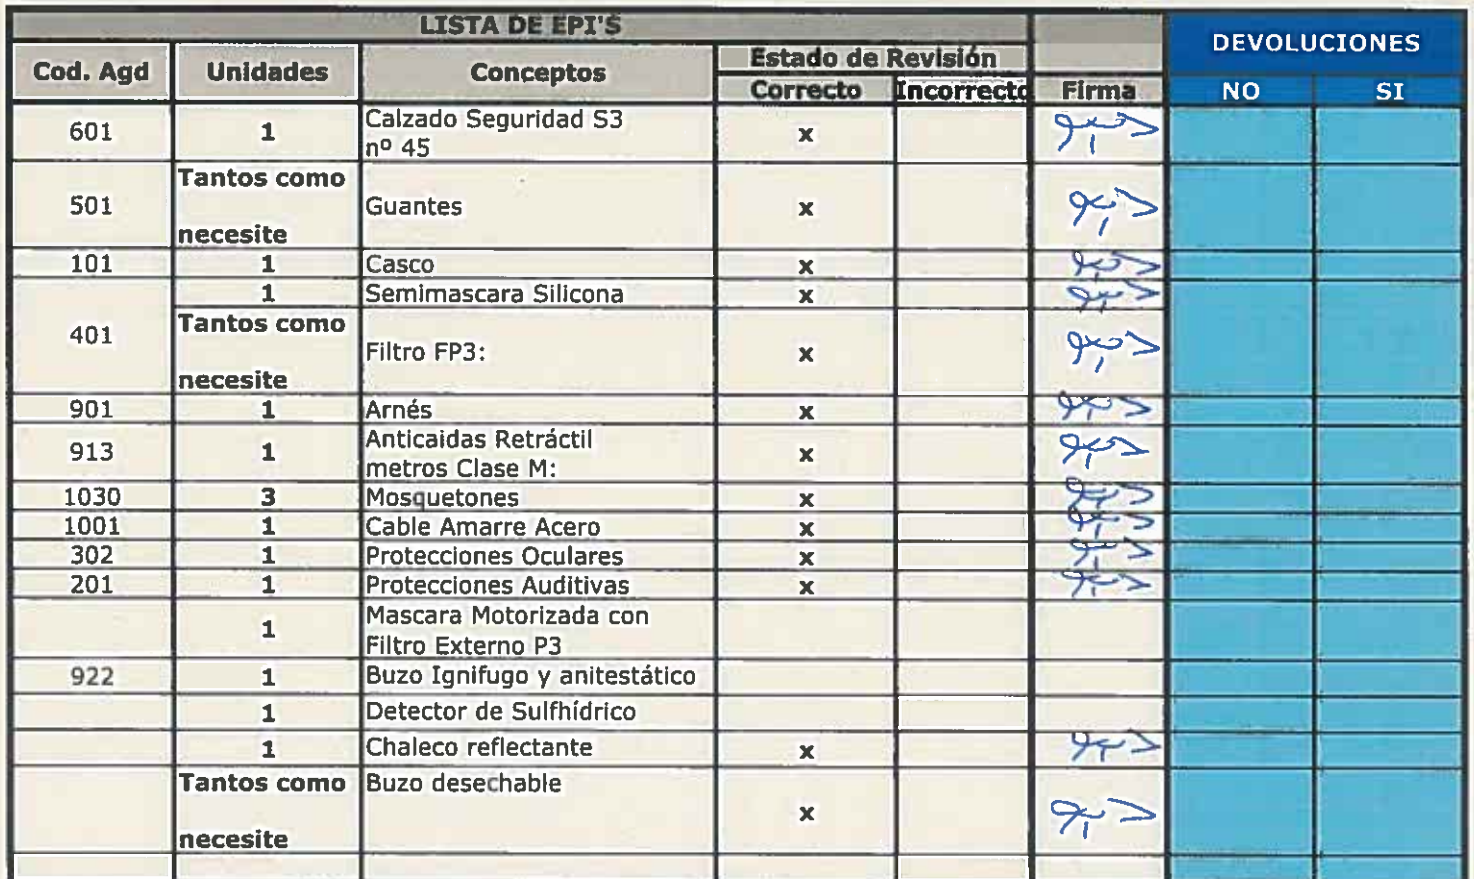 LISTA DE EPI'S
DEVOLUCIONES
Cod. Agd Unidades Conceptos Estado de Revisión
Correcto Incorrecto Firma NO SI
601 1 Calzado Seguridad S3
nº 45 x
501 Tantos como
necesite Guantes x
101 1 Casco x
1 Semimascara Silicona x
401 Tantos como
necesite Filtro FP3: x
901 1 Arnés x
913 1 Anticaidas Retráctil
metros Clase M: x
1030 3 Mosquetones x
1001 1 Cable Amarre Acero x
302 1 Protecciones Oculares x
201 1 Protecciones Auditivas x
1 Mascara Motorizada con
Filtro Externo P3
922 1 Buzo Ignifugo y anitestático
1 Detector de Sulfhídrico
1 Chaleco reflectante x
Tantos como Buzo desechable
necesite x